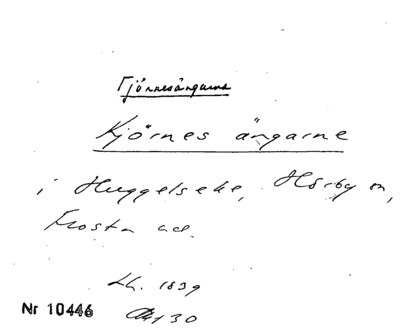 Tjörnesängarne
Kjörnes ängarne
i Huggelseke, Hörby sn,
Frosta hd.
Lh. 1839
Nr 10446 Akt 30